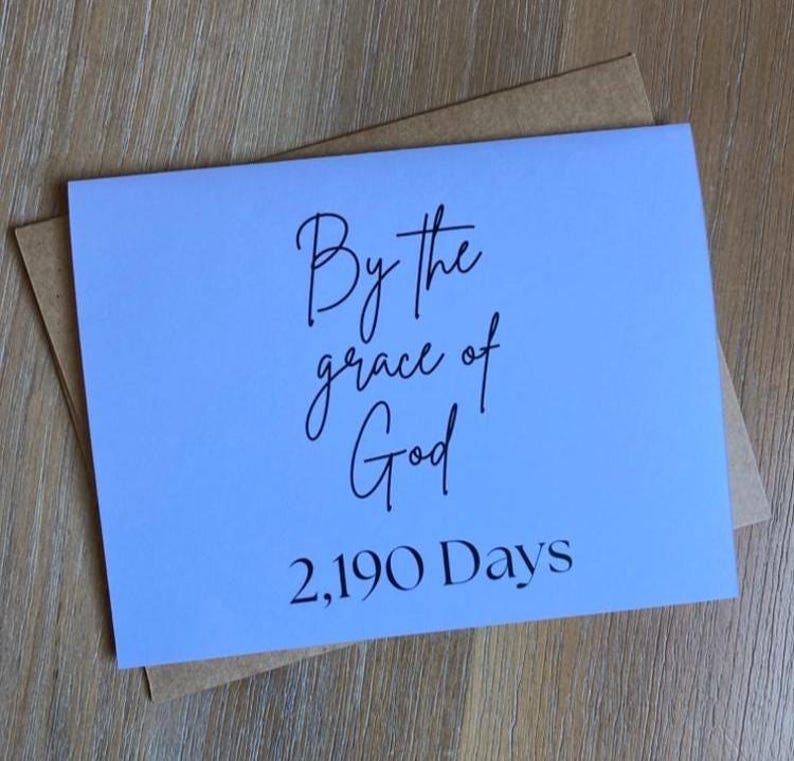 By the
grace of
God
2,190 Days